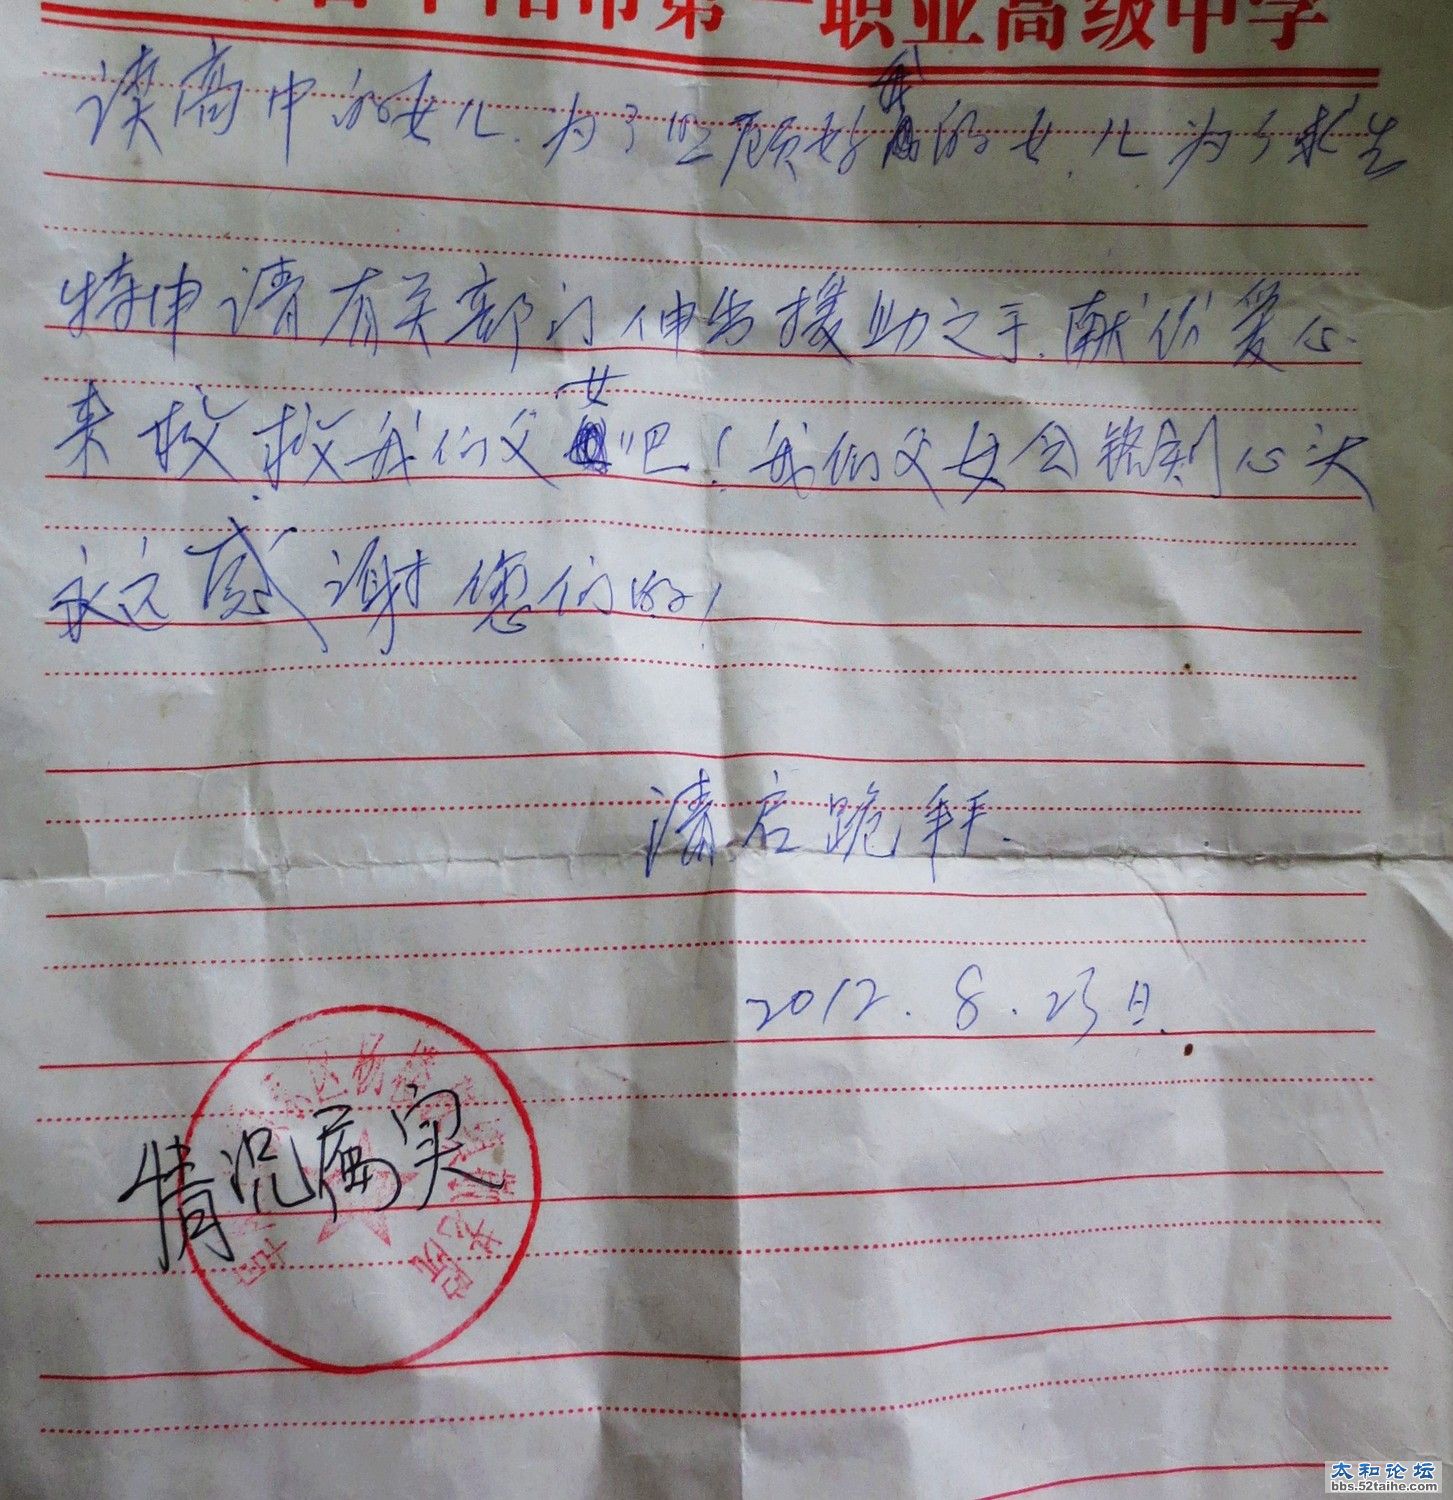 市第一职业高级中学
读高中的女儿.为了照顾好我的女儿为了求生
特申请有关部门伸出援助之手.献份爱心.
来救救我们父女吧!我们父女会铭刻心头
永远感谢您们的!
清启跪拜.
2012.8.23日.
情况属实
太和论坛
bbs.52taihe.com